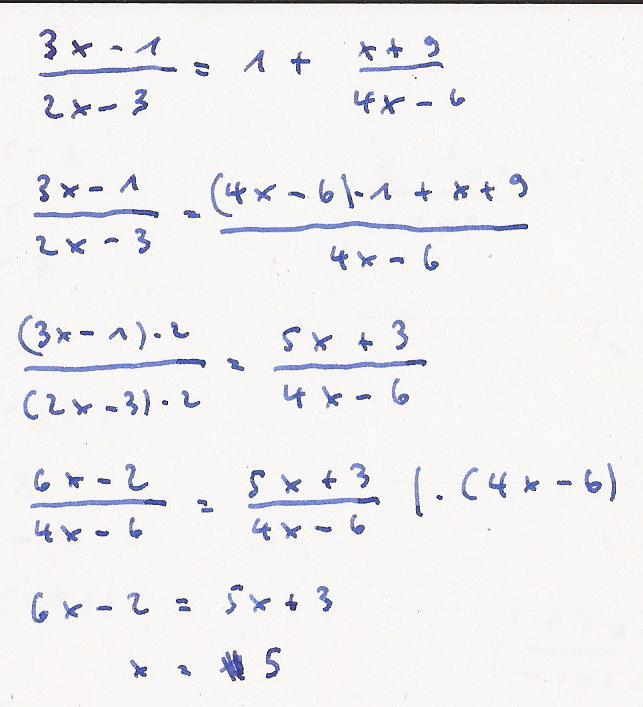 3x - 1 / 2x - 3 = 1 + x + 9 / 4x - 6
3x - 1 / 2x - 3 = (4x - 6) · 1 + x + 9 / 4x - 6
(3x - 1) · 2 / (2x - 3) · 2 = 5x + 3 / 4x - 6
6x - 2 / 4x - 6 = 5x + 3 / 4x - 6 | · (4x - 6)
6x - 2 = 5x + 3
x = 5